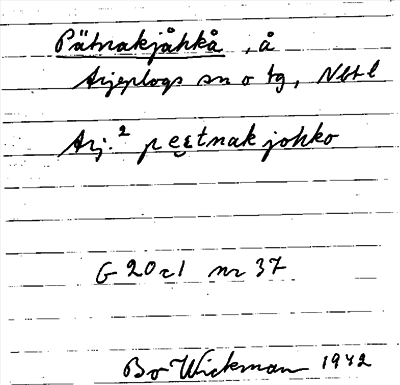 Pätnakjåhkå, å
Arjeplogs sn o tg, Nbt l
Arj.² peɛtnak johko
G 20 c 1 nr 37
Bo Wickman 1942